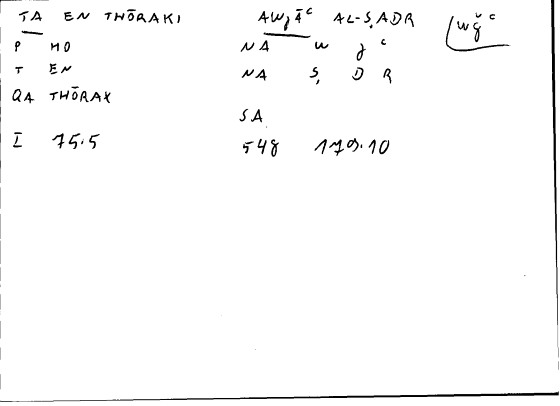 TA EN THŌRAKI AWǰĀᶜ AL-ṢADR √wǧᶜ
P HO NA w ǰ ᶜ
T EN NA Ṣ D R
QA THŌRAX
SA
I 75.5 548 179.10